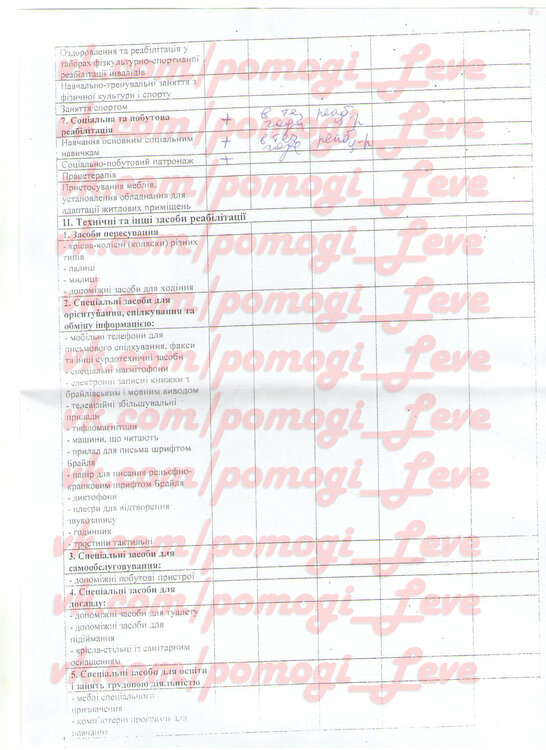 Оздоровлення та реабілітація у
таборах фізкультурно-спортивної
реабілітації інвалідів
Навчально-тренувальні заняття з
фізичної культури і спорту
Заняття спортом
7. Соціальна та побутова
реабілітація + в теч реаб.
года ц-р
Навчання основним соціальним
навичкам + в теч реаб
года ц-р
Соціально-побутовий патронаж +
Працетерапія
Пристосування меблів,
установлення обладнання для
адаптації житлових приміщень
ІІ. Технічні та інші засоби реабілітації
1. Засоби пересування
- крісла-колісні (коляски) різних
типів
- палиці
- милиці
- допоміжні засоби для ходіння
2. Спеціальні засоби для
орієнтування, спілкування та
обміну інформацією:
- мобільні телефони для
письмового спілкування, факси
та інші сурдотехнічні засоби
- спеціальні магнітофони
- електронні записні книжки з
брайлівським і мовним виводом
- телевізійні збільшувальні
прилади
- тифломагнітоли
- машини, що читають
- прилад для письма шрифтом
Брайля
- папір для писання рельєфно-
крапковим шрифтом Брайля
- диктофони
- плеєри для відтворення
звукозапису
- годинник
- тростини тактильні
3. Спеціальні засоби для
самообслуговування:
- допоміжні побутові пристрої
4. Спеціальні засоби для
догляду:
- допоміжні засоби для туалету
- допоміжні засоби для
підіймання
- крісла-стільці із санітарним
оснащенням
5. Спеціальні засоби для освіти
і занять трудовою діяльністю
- меблі спеціального
призначення
- комп'ютерні програми для
навчання
vk.com/pomogi_Leve
vk.com/pomogi_Leve
vk.com/pomogi_Leve
vk.com/pomogi_Leve
vk.com/pomogi_Leve
vk.com/pomogi_Leve
vk.com/pomogi_Leve
vk.com/pomogi_Leve
vk.com/pomogi_Leve
vk.com/pomogi_Leve